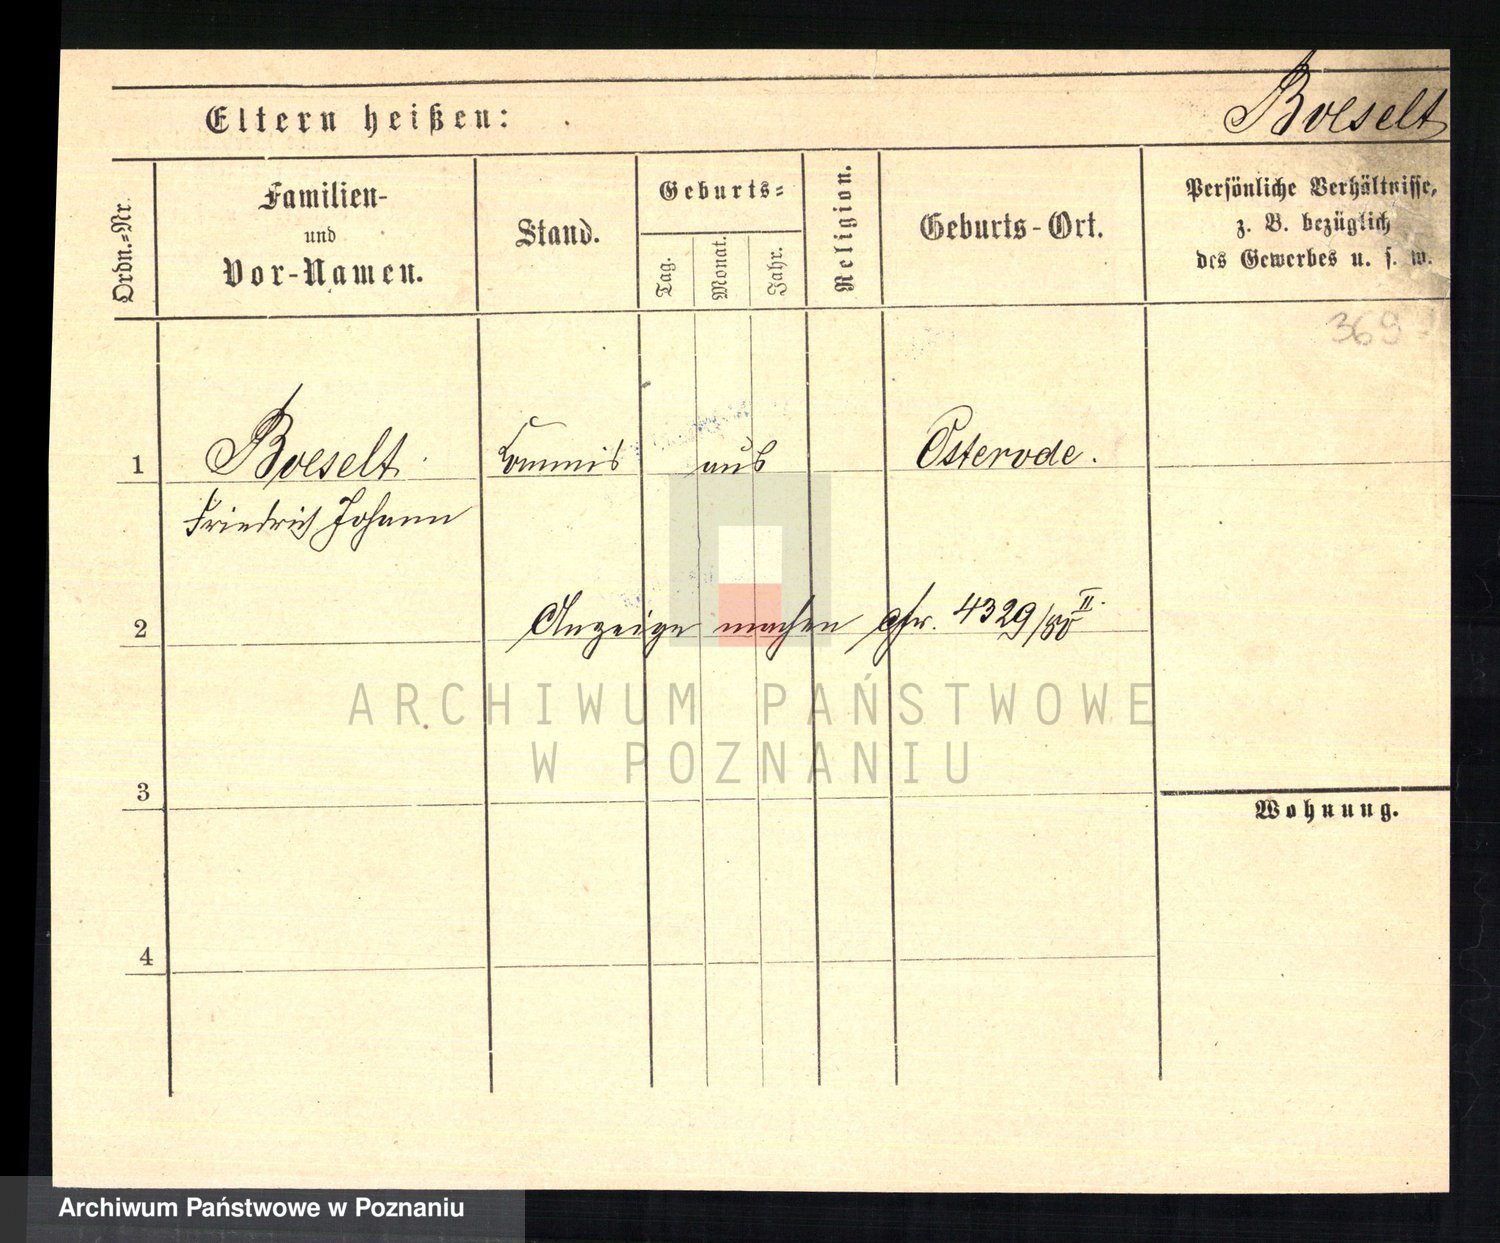 Boeselt
Eltern heißen:
Ordn.=Nr.
Familien-
und
Vor-Namen.
Stand.
Geburts=
Tag.
Monat.
Jahr.
Religion.
Geburts-Ort.
Persönliche Verhältnisse,
z. B. bezüglich
des Gewerbes u. s. w.
369
1
Boeselt
Commis
aus
Osterode.
Friedrich Johann
2
Anzeige machen cfr. 4329/80 II.
ARCHIWUM PAŃSTWOWE
W POZNANIU
3
Wohnung.
4
Archiwum Państwowe w Poznaniu